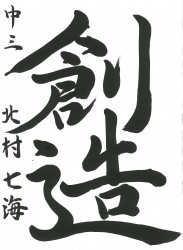 創造
中三
北村七海